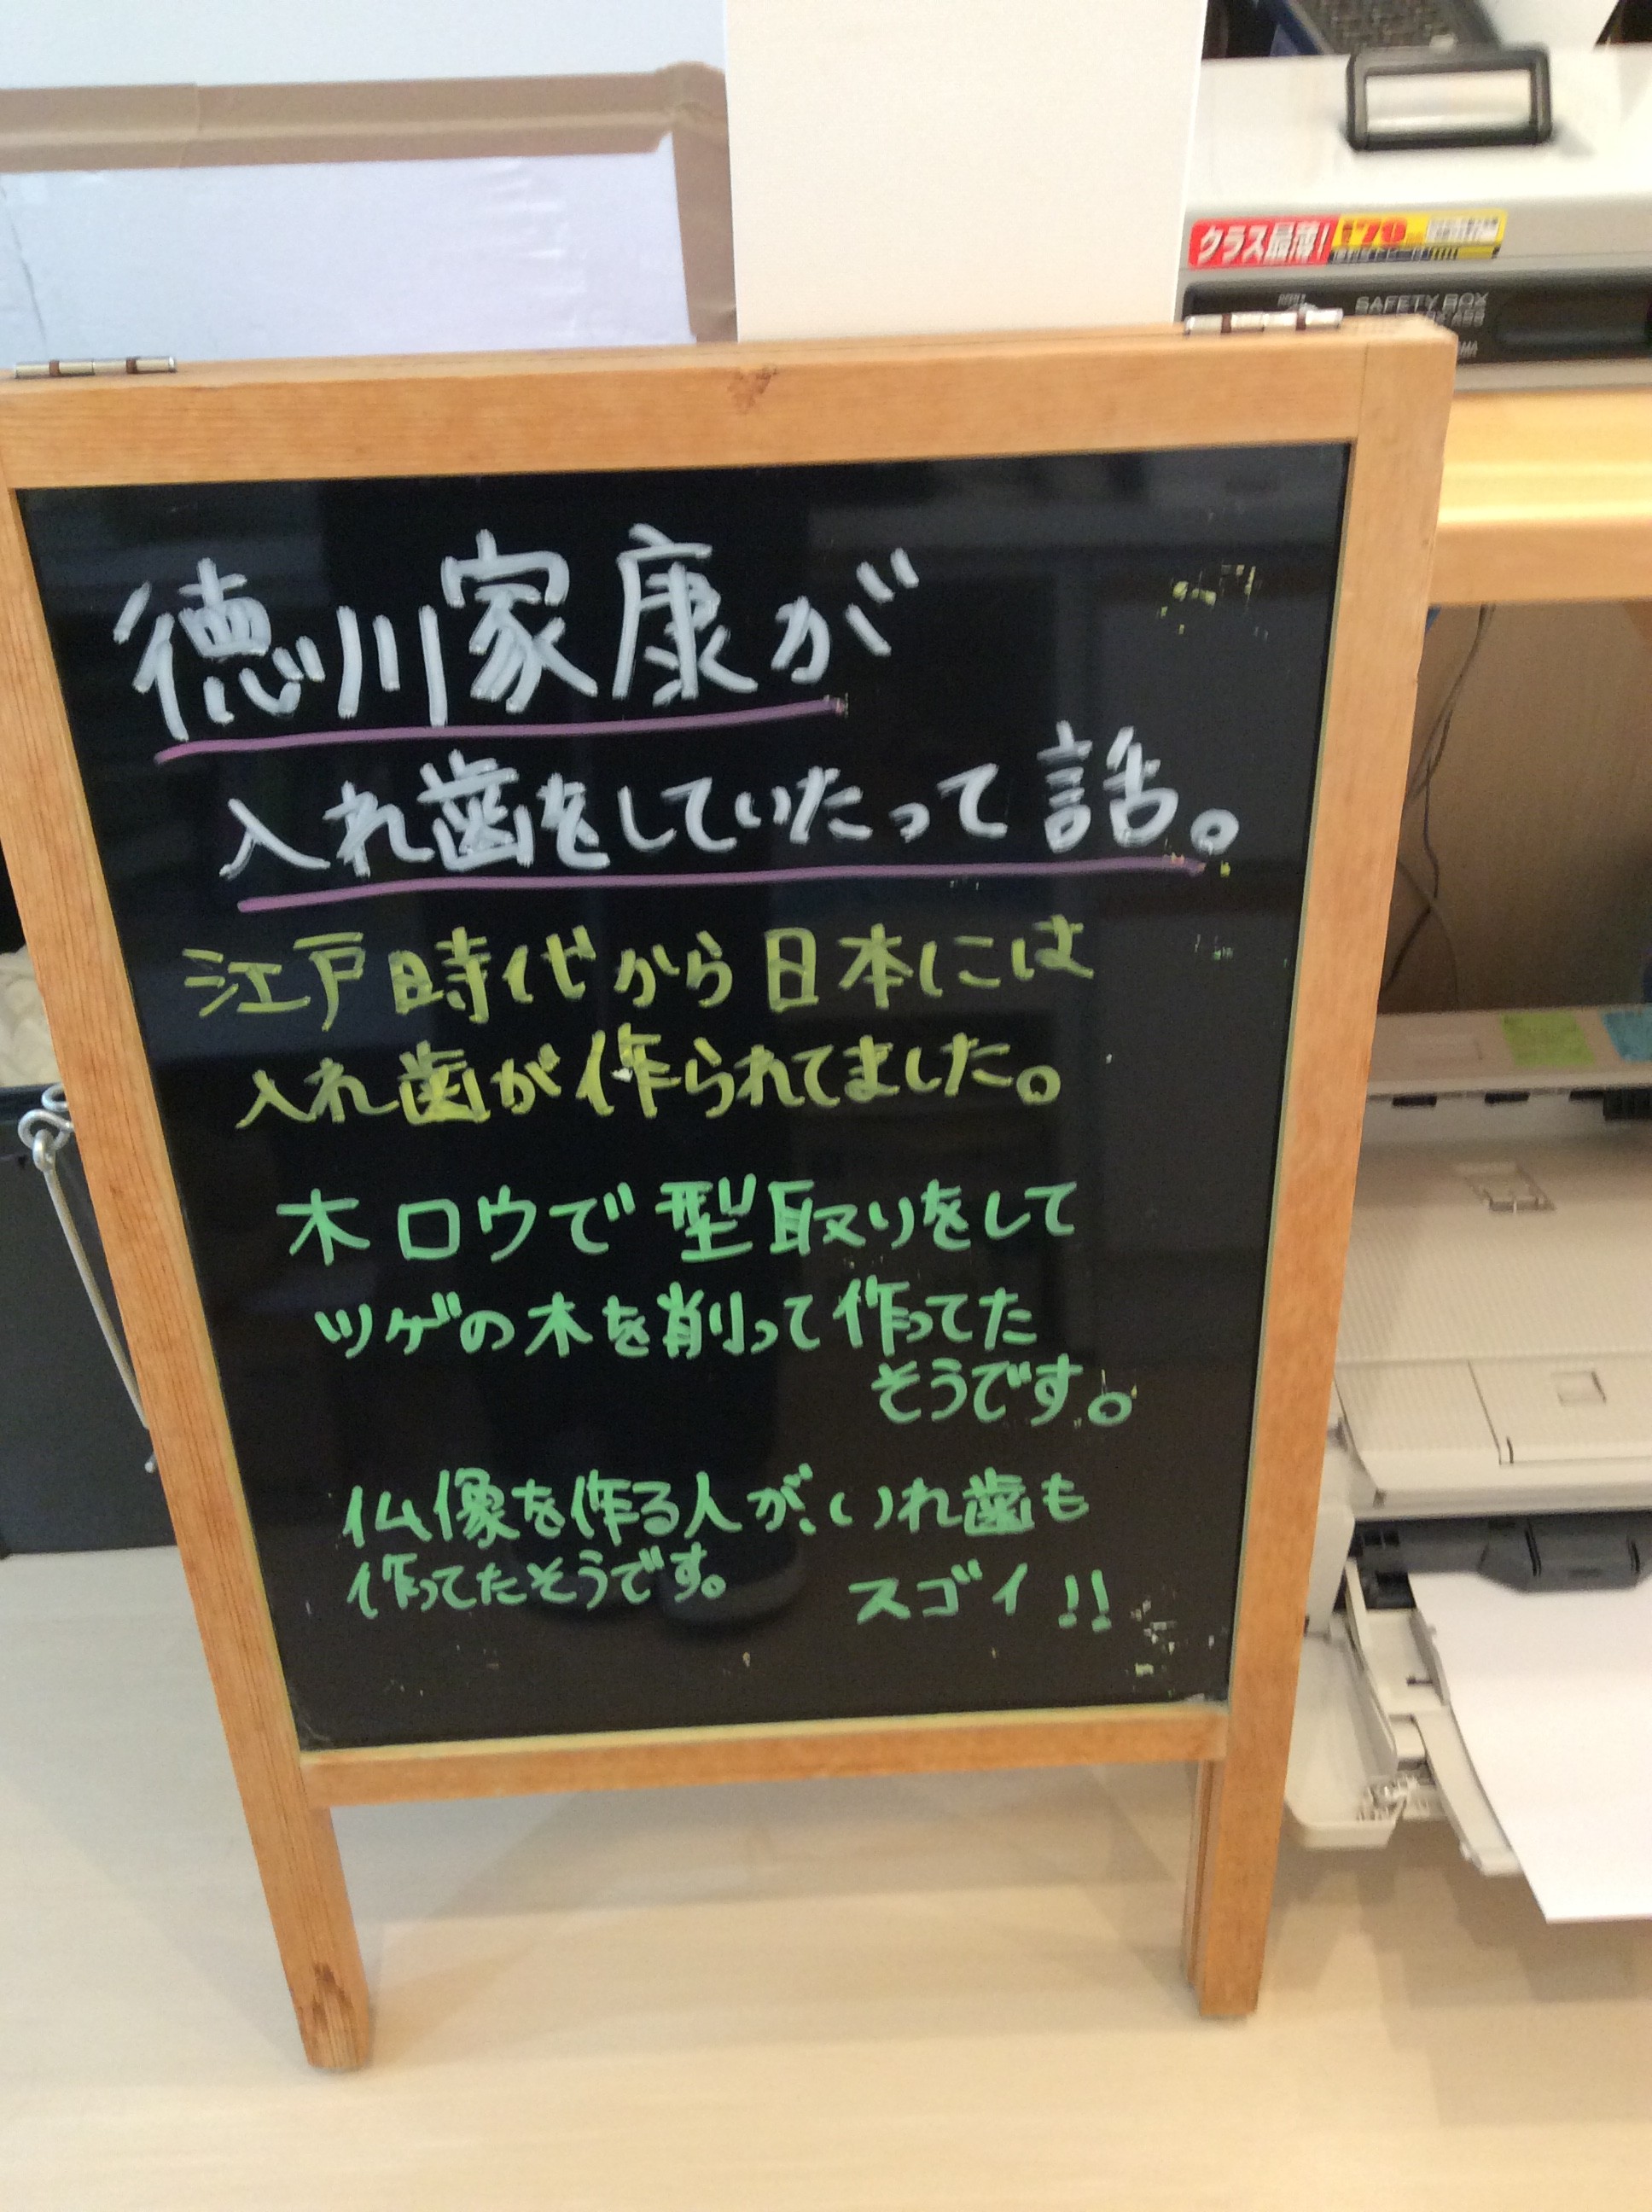 クラス最薄!
SAFETY BOX
徳川家康が
入れ歯をしていたって話。
江戸時代から日本には
入れ歯が作られてました。
木ロウで型取りをして
ツゲの木を削って作ってた
そうです。
仏像を作る人が、いれ歯も
作ってたそうです。 スゴイ!!